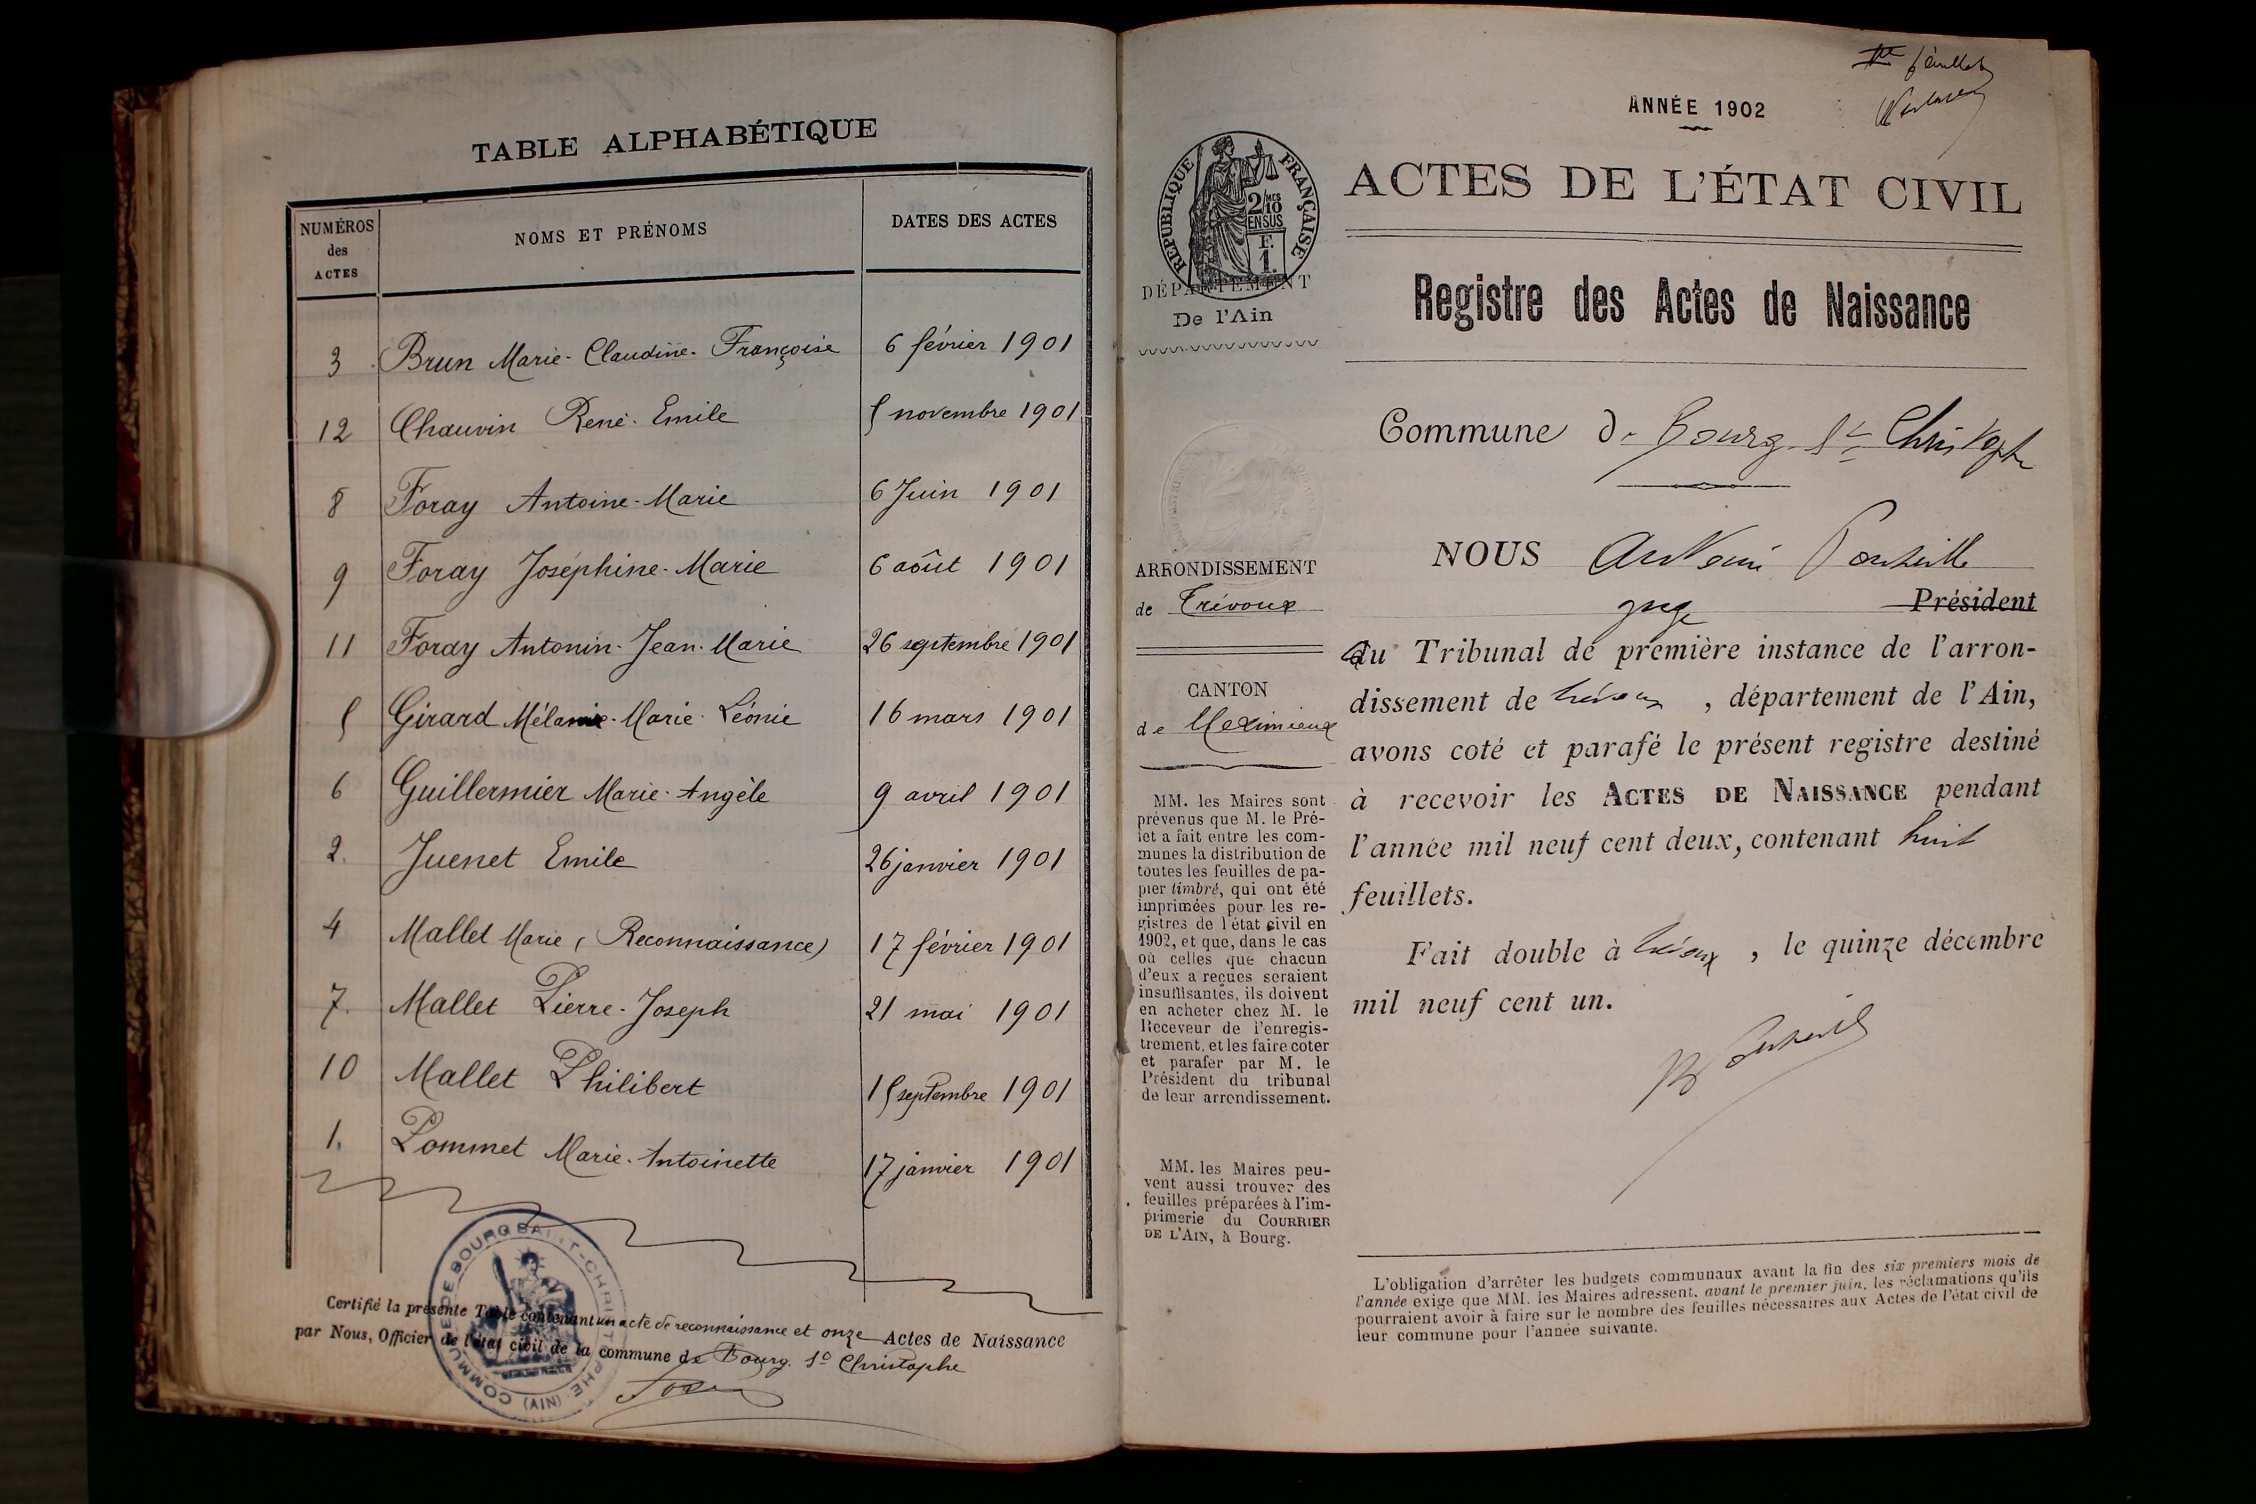 TABLE ALPHABÉTIQUE
NUMÉROS des ACTES NOMS ET PRÉNOMS DATES DES ACTES
3 Brun Marie-Claudine-Françoise 6 février 1901
12 Chauvin René-Emile 5 novembre 1901
8 Foray Antoine-Marie 6 Juin 1901
9 Foray Joséphine-Marie 6 août 1901
11 Foray Antonin-Jean-Marie 26 septembre 1901
5 Girard Mélanie-Marie-Léonie 16 mars 1901
6 Guillermier Marie-Angèle 9 avril 1901
2. Juenet Emile 26 janvier 1901
4 Mallet Marie (Reconnaissance) 17 février 1901
7. Mallet Pierre-Joseph 21 mai 1901
10 Mallet Philibert 15 septembre 1901
1. Pommet Marie-Antoinette 17 janvier 1901
COMMUNE DE BOURG SAINT-CHRISTOPHE (AIN)
Certifié la présente Table contenant un acte de reconnaissance et onze Actes de Naissance
par Nous, Officier de l'état civil de la commune de Bourg St Christophe
feuillet
ANNÉE 1902
RÉPUBLIQUE FRANÇAISE
2/10 MES
EN SUS
F.
1.
DÉPARTEMENT
De l'Ain
ARRONDISSEMENT
de Trévoux
CANTON
de Meximieux
MM. les Maires sont
prévenus que M. le Pré-
fet a fait entre les com-
munes la distribution de
toutes les feuilles de pa-
pier timbré, qui ont été
imprimées pour les re-
gistres de l'état civil en
1902, et que, dans le cas
où celles que chacun
d'eux a reçues seraient
insuffisantes, ils doivent
en acheter chez M. le
Receveur de l'enregis-
trement, et les faire coter
et parafer par M. le
Président du tribunal
de leur arrondissement.
MM. les Maires peu-
vent aussi trouver des
feuilles préparées à l'im-
primerie du COURRIER
DE L'AIN, à Bourg.
ACTES DE L'ÉTAT CIVIL
Registre des Actes de Naissance
Commune de Bourg St Christophe
NOUS
juge Président
du Tribunal de première instance de l'arron-
dissement de Trévoux, département de l'Ain,
avons coté et parafé le présent registre destiné
à recevoir les ACTES DE NAISSANCE pendant
l'année mil neuf cent deux, contenant huit
feuillets.
Fait double à Trévoux, le quinze décembre
mil neuf cent un.
L'obligation d'arrêter les budgets communaux avant la fin des six premiers mois de
l'année exige que MM. les Maires adressent, avant le premier juin, les réclamations qu'ils
pourraient avoir à faire sur le nombre des feuilles nécessaires aux Actes de l'état civil de
leur commune pour l'année suivante.